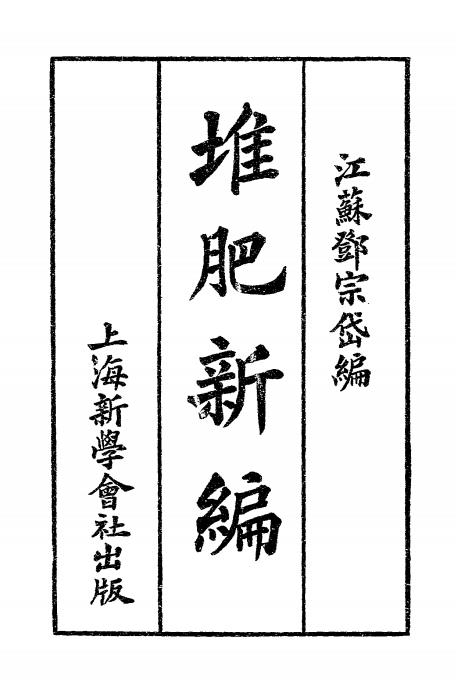 江蘇鄧宗岱編
堆肥新編
上海新學會社出版